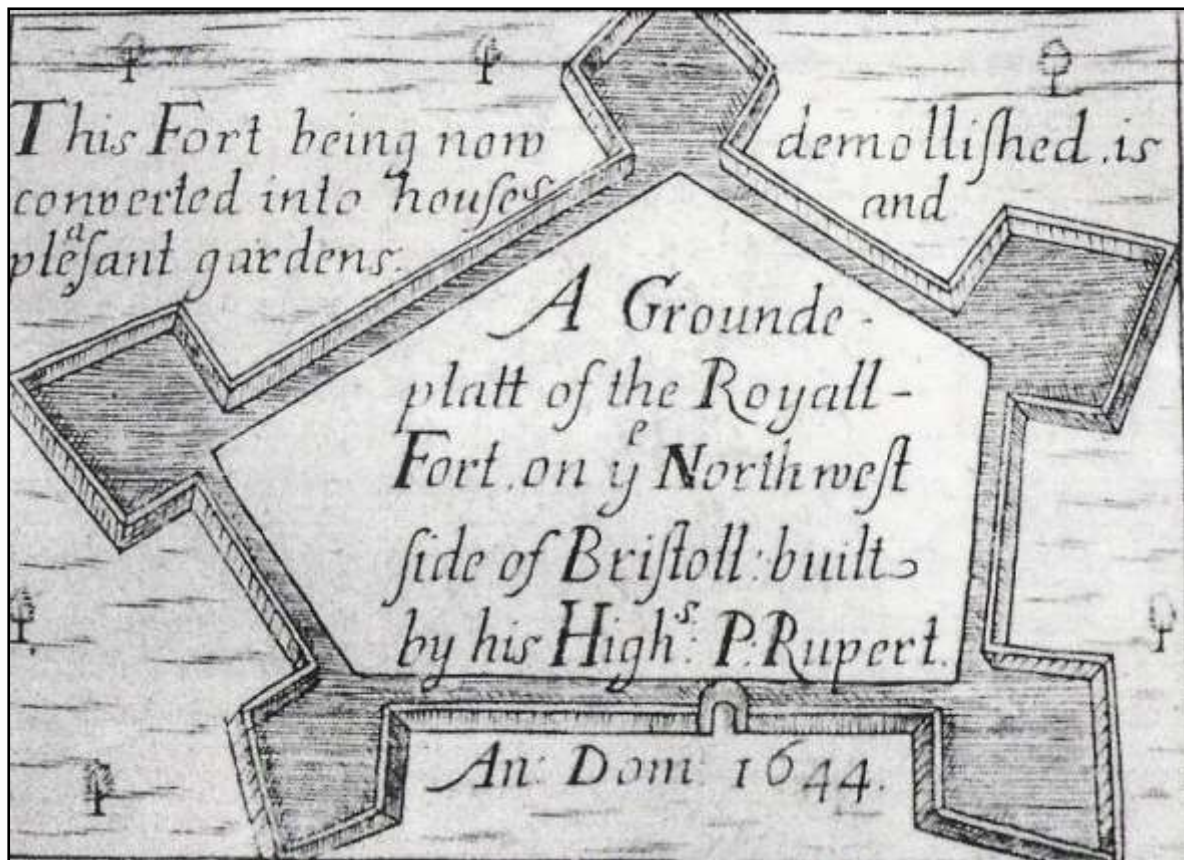 This Fort being now demolliſhed.is
converted into houſes and
pleaſant gardens.
A Grounde-
platt of the Royall-
Fort,on yᵉ Northweſt
ſide of Briſtoll:built
by his Highˢ: P:Rupert.
An: Dom: 1644.